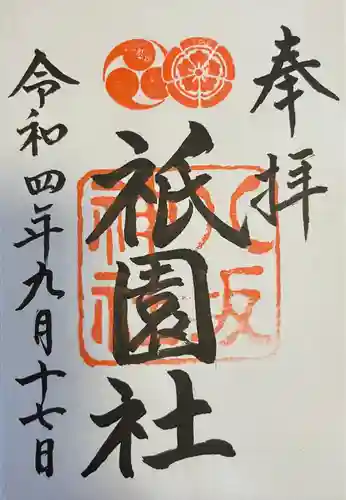 奉拝
祇園社
八坂神社
令和四年九月十七日